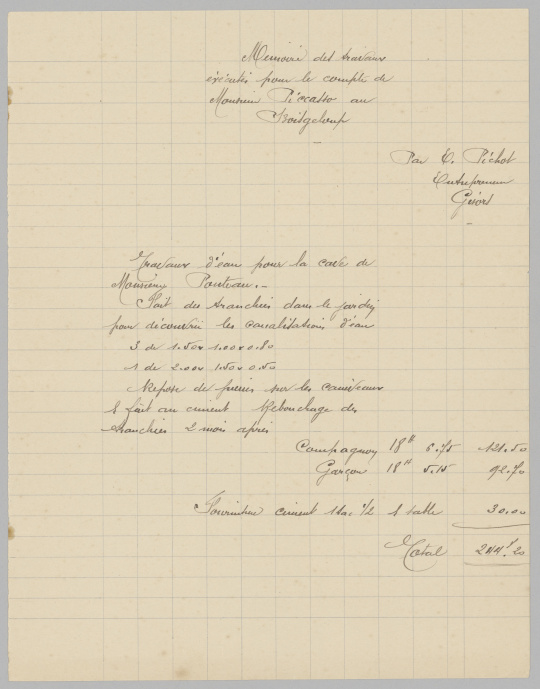 Memoire des travaux
éxécutés pour le compte de
Monsieur Piccasso au
Boisgeloup
Par E. Pichot
Entrepreneur
Gisors
Travaux d'eau pour la cave de
Monsieur Pouteau.-
Fait des tranchées dans le jardin
pour découvrir les canalisations d'eau
3 de 1.50 x 1.00 x 0.80
1 de 2.00 x 1.50 x 0.50
Repose de pierres sur les caniveaux
& fait au ciment Rebouchage des
tranchées 2 mois après
Compagnon 18H 6.75 121.50
Garçon 18H 5.15 92.70
Fourniture ciment 1 sac 1/2 & sable 30.00
Total 244f.20